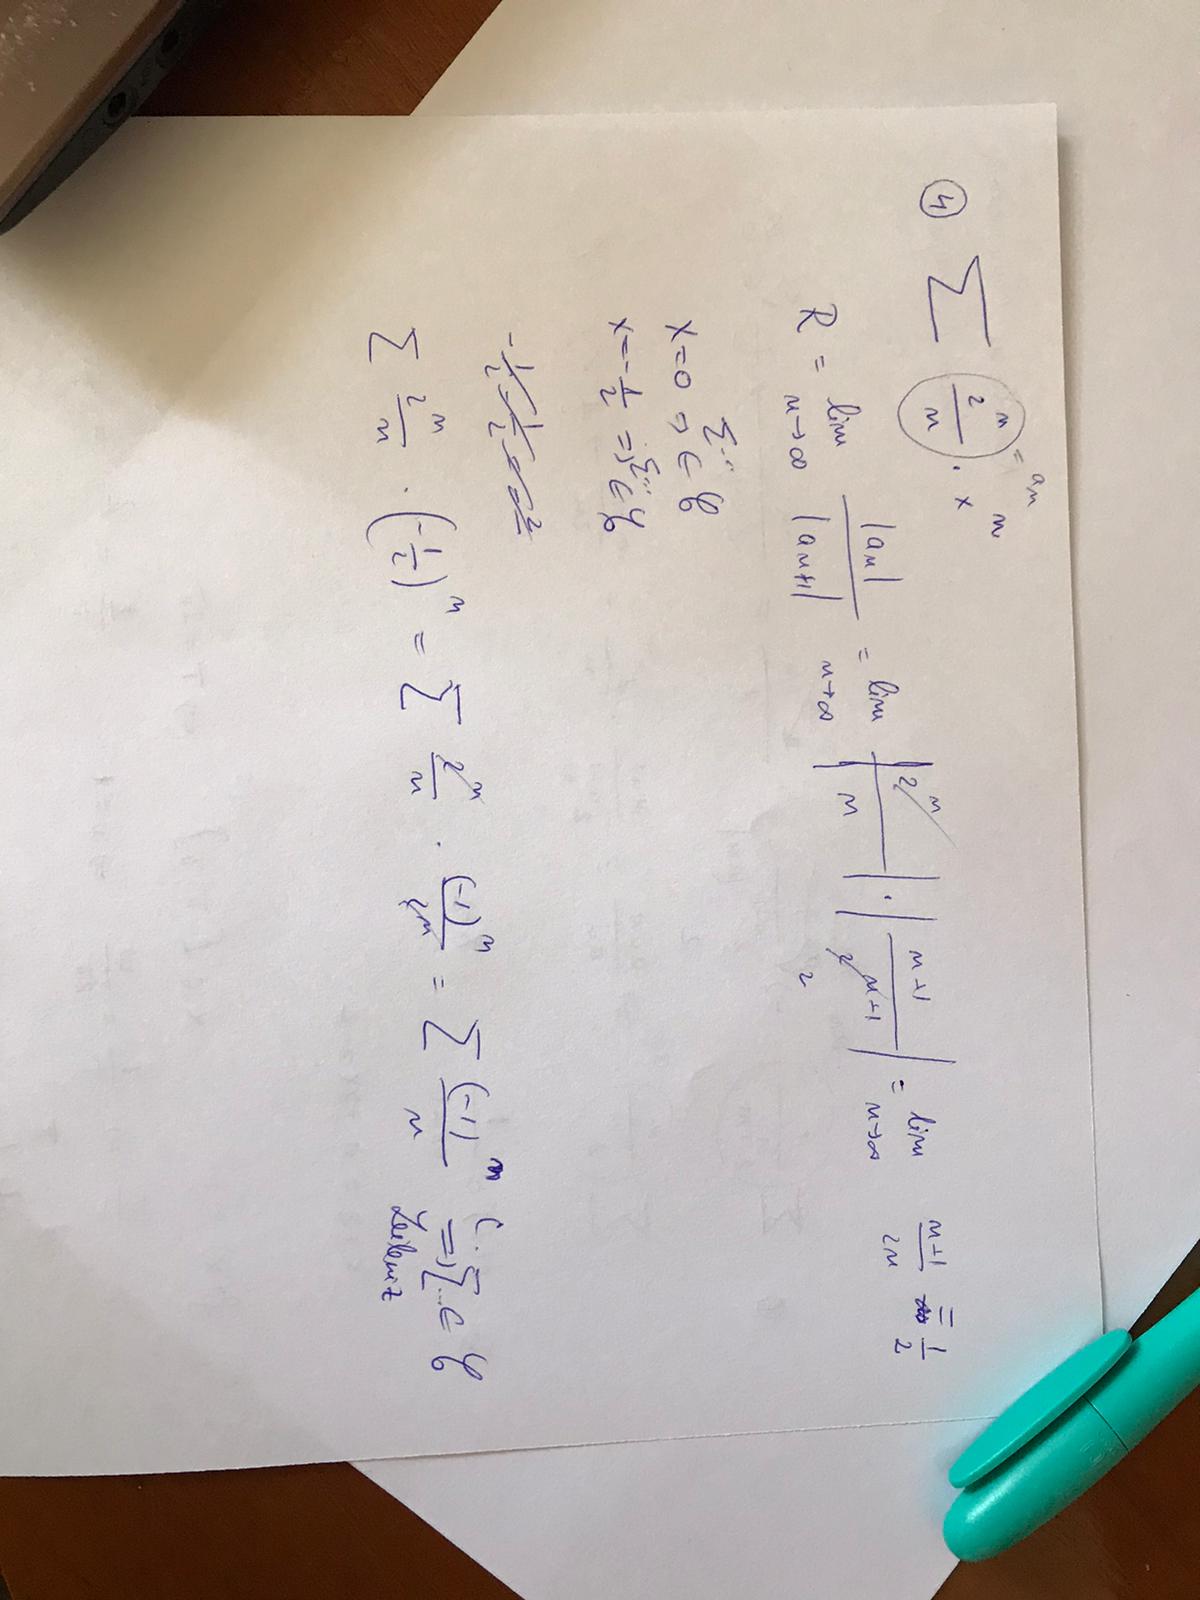 ④ ∑ 2^n/n · x^n = a_n
R = lim n→∞ |a_n|/|a_n+1| = lim n→∞ |2^n/n| · |n+1/2^n+1| 2 = lim n→∞ n+1/2n = 1/2
x=0 => ∑... ∈ 𝒞
x=-1/2 => ∑... ∈ 𝒞
∑ 2^n/n · (-1/2)^n = ∑ 2^n/n · (-1)^n/2^n = ∑ (-1)^n/n => ∑... ∈ 𝒞
Leibniz